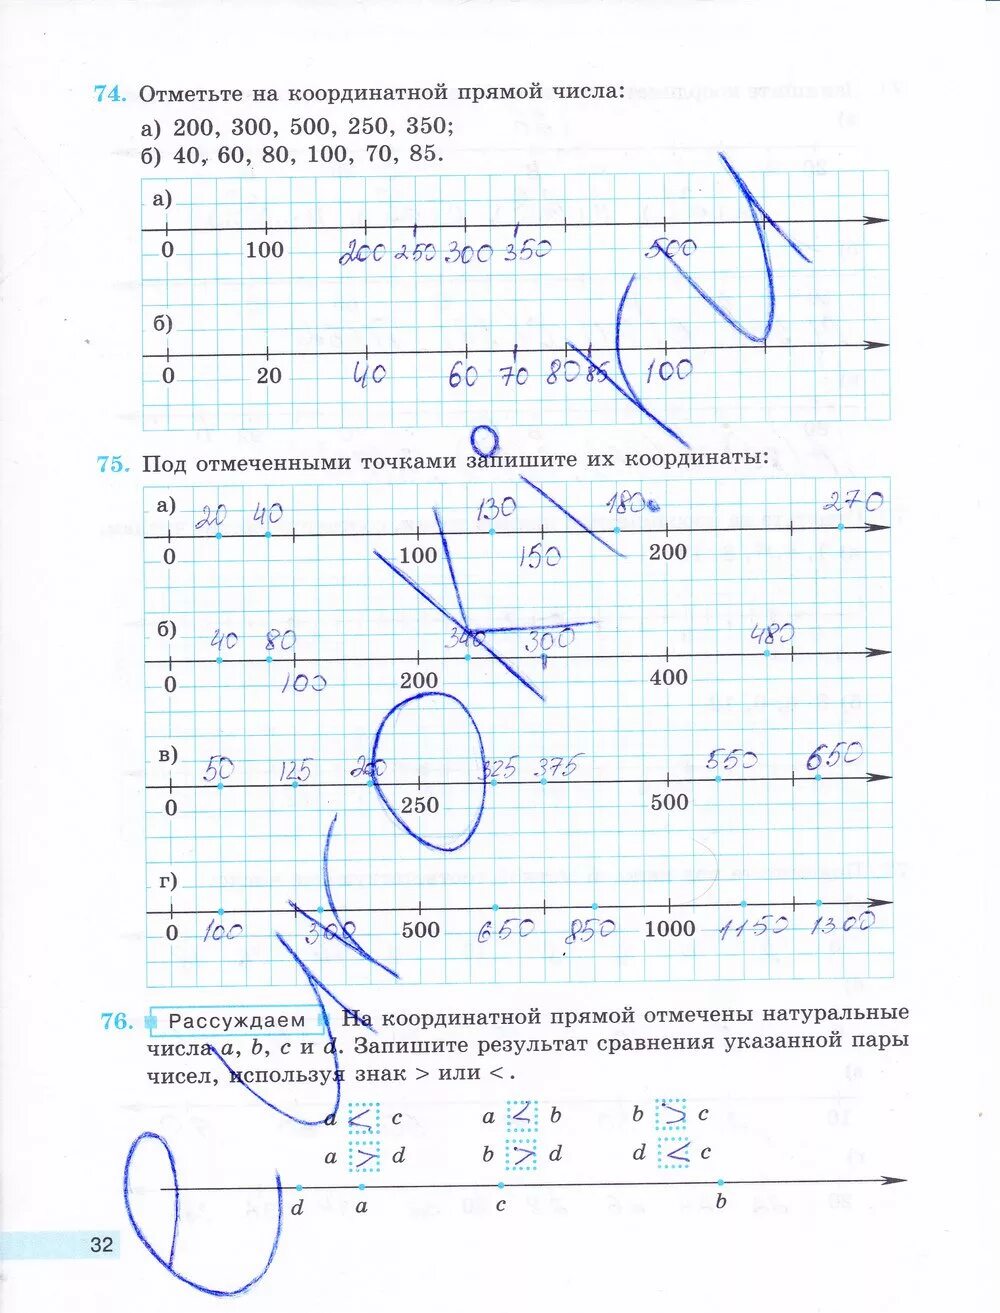 74. Отметьте на координатной прямой числа:
а) 200, 300, 500, 250, 350;
б) 40, 60, 80, 100, 70, 85.
а)
0 100 200 250 300 350 500
б)
0 20 40 60 70 80 85 100
75. Под отмеченными точками запишите их координаты:
а) 20 40 130 180 270
0 100 150 200
б) 40 80 340 300 480
0 100 200 400
в) 50 125 200 325 375 550 650
0 250 500
г)
0 100 300 500 650 850 1000 1150 1300
76. Рассуждаем На координатной прямой отмечены натуральные
числа a, b, c и d. Запишите результат сравнения указанной пары
чисел, используя знак > или <.
a < c a < b b > c
a > d b > d d < c
d a c b
32